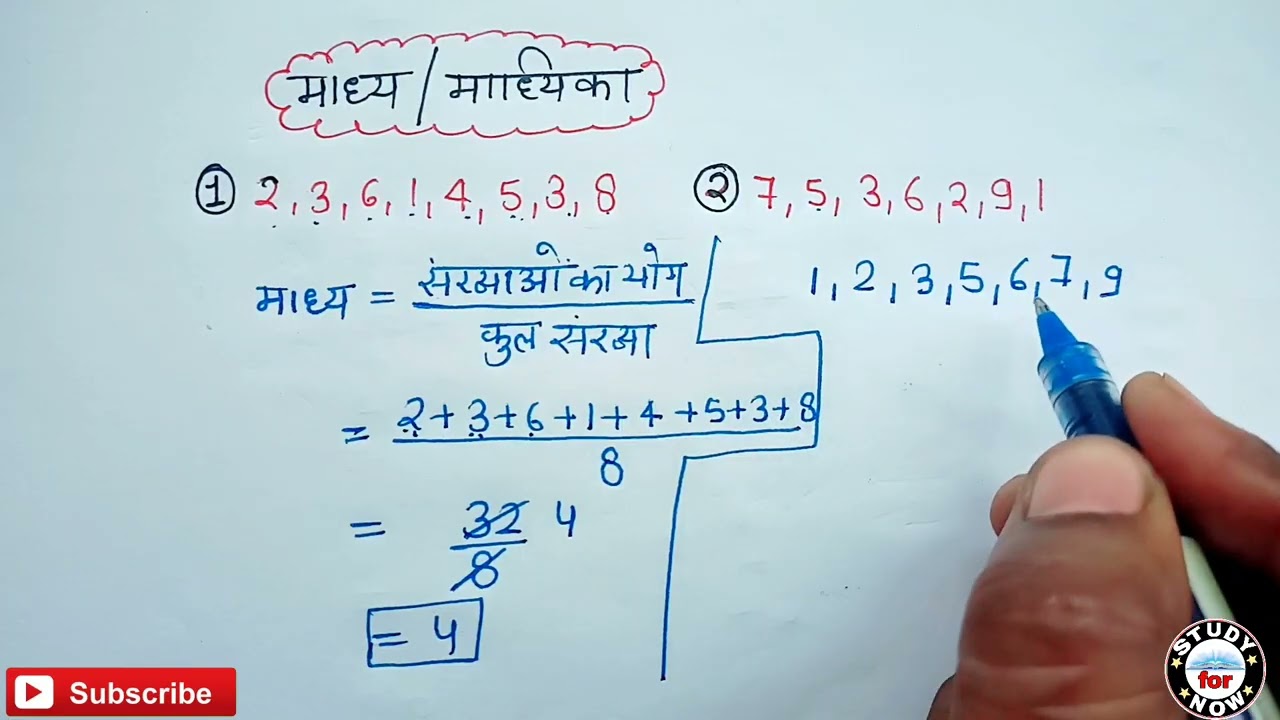 माध्य / माध्यिका
① 2, 3, 6, 1, 4, 5, 3, 8
माध्य = संख्याओं का योग
कुल संख्या
= 2 + 3 + 6 + 1 + 4 + 5 + 3 + 8
8
= 32 4
8
= 4
② 7, 5, 3, 6, 2, 9, 1
1, 2, 3, 5, 6, 7, 9
Subscribe
STUDY
for
NOW